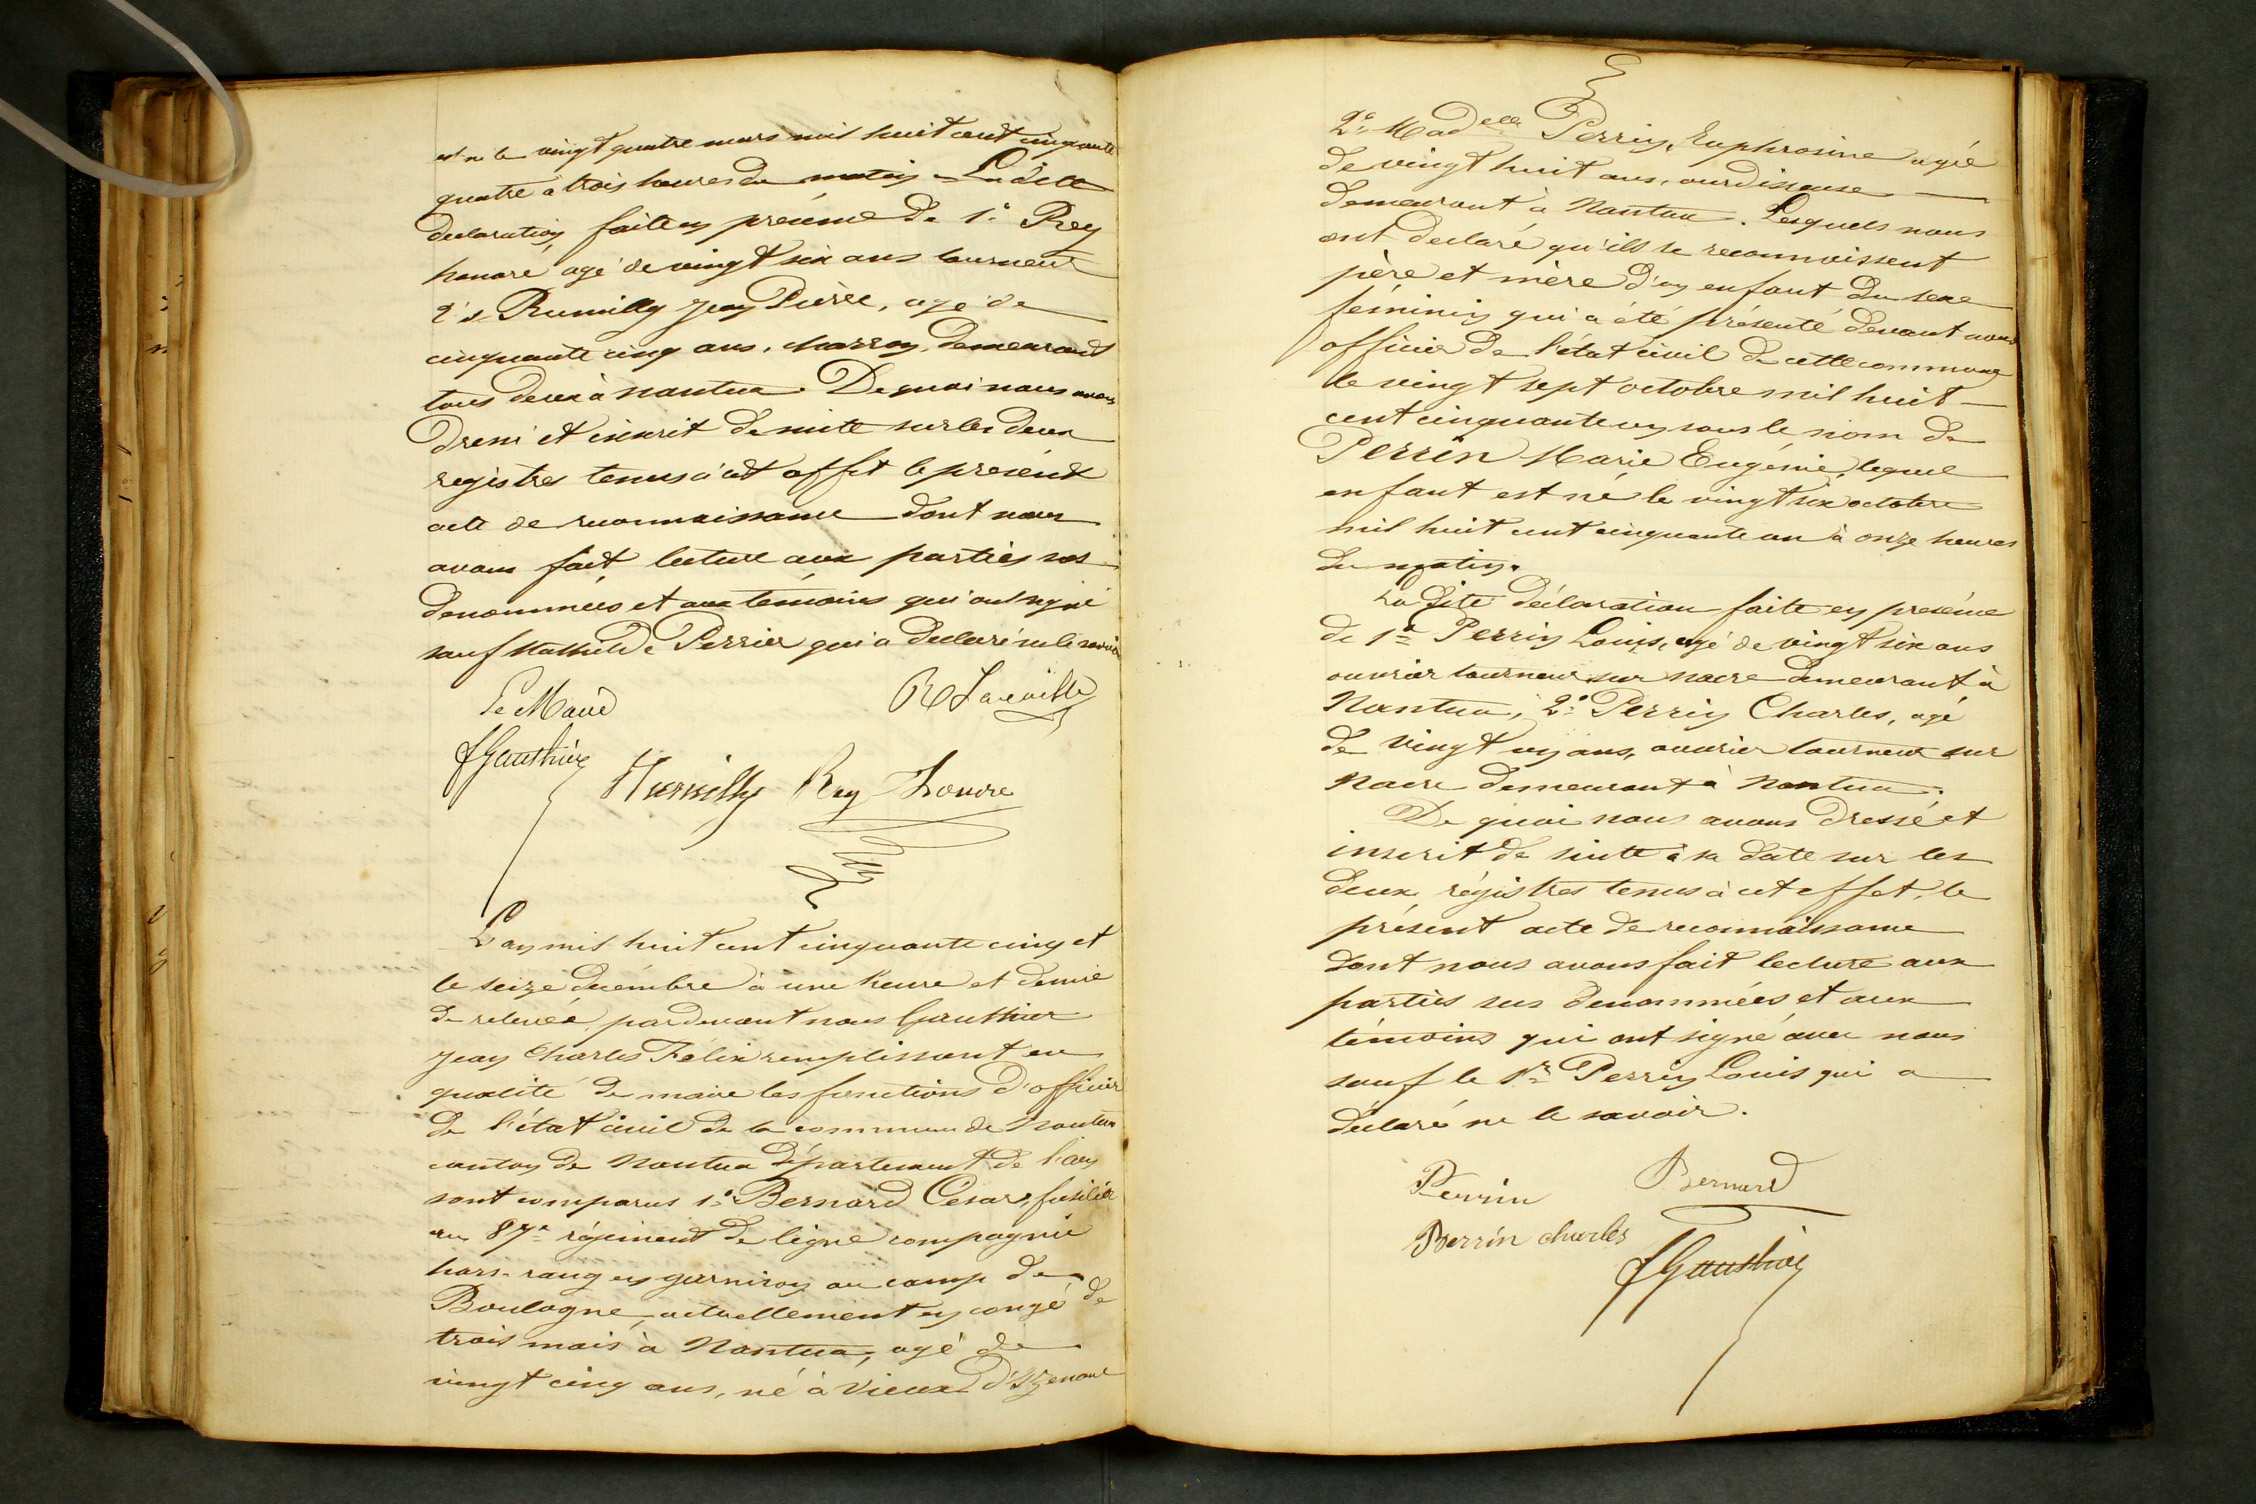 est né le vingt quatre mars mil huit cent cinquante
quatre à trois heures du matin. La dite
declaration faite en présence de 1° Rey
honoré agé de vingt six ans tourneur
2° Rumilly Jean Pierre, agé de
cinquante cinq ans, charron, demeurant
tous deux à Nantua. De quoi nous avons
dressé et inscrit de suite sur les deux
registres tenus à cet effet le présent
acte de reconnaissance dont nous
avons fait lecture aux parties sus
denommées et aux témoins qui ont signé
sauf Mathilde Perrier qui a declaré ne le savoir
Le Maire
FGauthier Rumilly Rey Honoré
L'an mil huit cent cinquante cinq et
le seize décembre à une heure et demie
de relevée, pardevant nous Gauthier
Jean Charles Félix remplissant en
qualité de maire les fonctions d'officier
de l'état civil de la commune de Nantua
canton de Nantua département de l'ain
sont comparus 1° Bernard César, fusilier
au 87e régiment de ligne compagnie
hors-rang en garnison au camp de
Boulogne, actuellement en congé de
trois mois à Nantua, agé de
vingt cinq ans, né à Vieux d'Izenave
2° Madelle Perrin, Euphrosine agée
de vingt huit ans, ourdisseuse
demeurant à Nantua. Lesquels nous
ont declaré qu'ils se reconnaissent
père et mère d'un enfant du sexe
féminin qui a été présenté devant nous
officier de l'état civil de cette commune
le vingt sept octobre mil huit
cent cinquante un sous le nom de
Perrin Marie Eugénie, lequel
enfant est né le vingt six octobre
mil huit cent cinquante un à onze heures
du matin.
La dite déclaration faite en présence
de 1° Perrin Louis, agé de vingt six ans
ouvrier tourneur sur nacre demeurant à
Nantua, 2° Perrin Charles, agé
de vingt un ans, ouvrier tourneur sur
nacre demeurant à Nantua.
De quoi nous avons dressé et
inscrit de suite à sa date sur les
deux régistres tenus à cet effet, le
présent acte de reconnaissance
dont nous avons fait lecture aux
parties sus denommées et aux
témoins qui ont signé avec nous
sauf le Sr Perrin Louis qui a
déclaré ne le savoir.
Perrin Bernard
Perrin charles
FGauthier